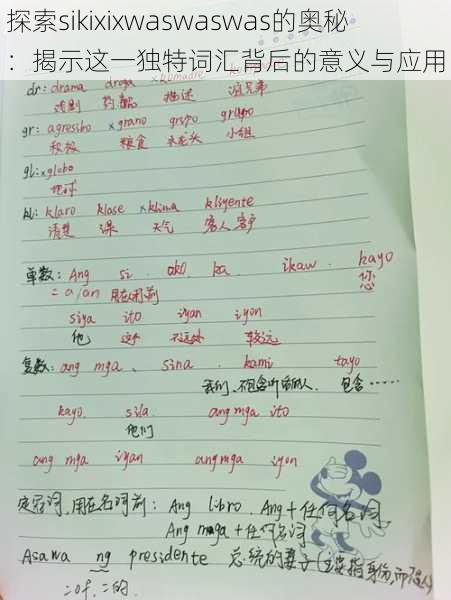 探索sikixixwaswaswas的奥秘
：揭示这一独特词汇背后的意义与应用
dr: drama droga ×komadre
戏剧 药物 描述 派兄弟
gr: agresibo ×grano grupo
积极 粮食 水龙头 小组
gl: ×globo
地球
kl: klaro klase ×klima kliyente
清楚 课 天气 客人 客户
单数: Ang si. ako. ka. ikaw. kayo
= a/an 用在词前 您
siya ito iyan iyon
他 这个 不远处 较远
复数: ang mga、 sina. kami tayo
我们、不包含听话的人. 包含……
kayo. sila. ang mga ito
他们
ang mga iyan ang mga iyon
定冠词, 用在名词前: Ang libro. Ang + 任何名词.
Ang mga + 任何名词
Asawa ng presidente 总统的妻子(主要指身份, 而
=of, =的.